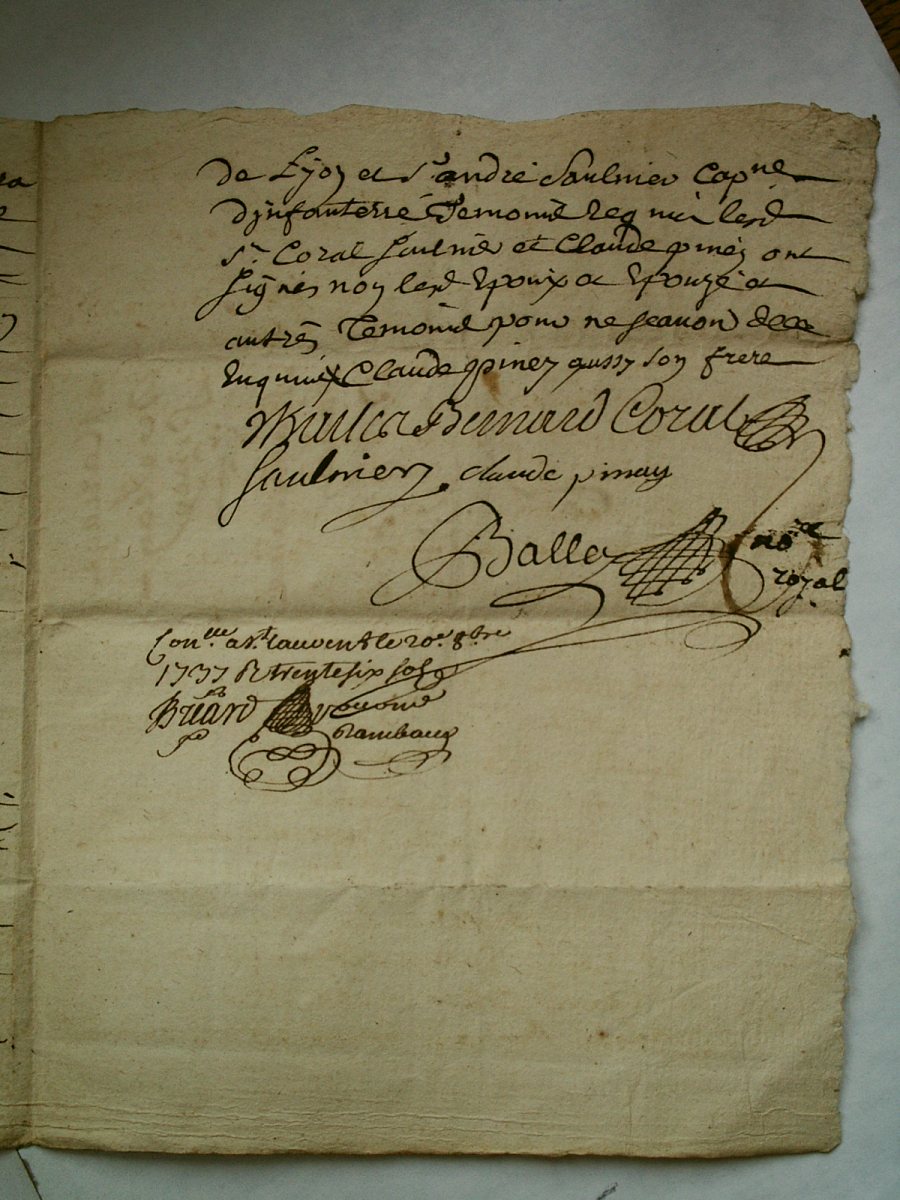 de Lyon et sr andré Saulnier Capne
dynfanterié Temoins req mis lesd
sr. Coral Saulnié et Claude pinéz ont
signés non lesd Epoux et Epouzé et
autrés Temoins pour ne scauoir de ce
Enquis Claude pinez aussy son frere
Bernard Coral
Saulnier claude pinay
Ballet nore
royal
Conlle a st laurent le 20e 8bre
1737 R trente six sols
Briard
Rambaud